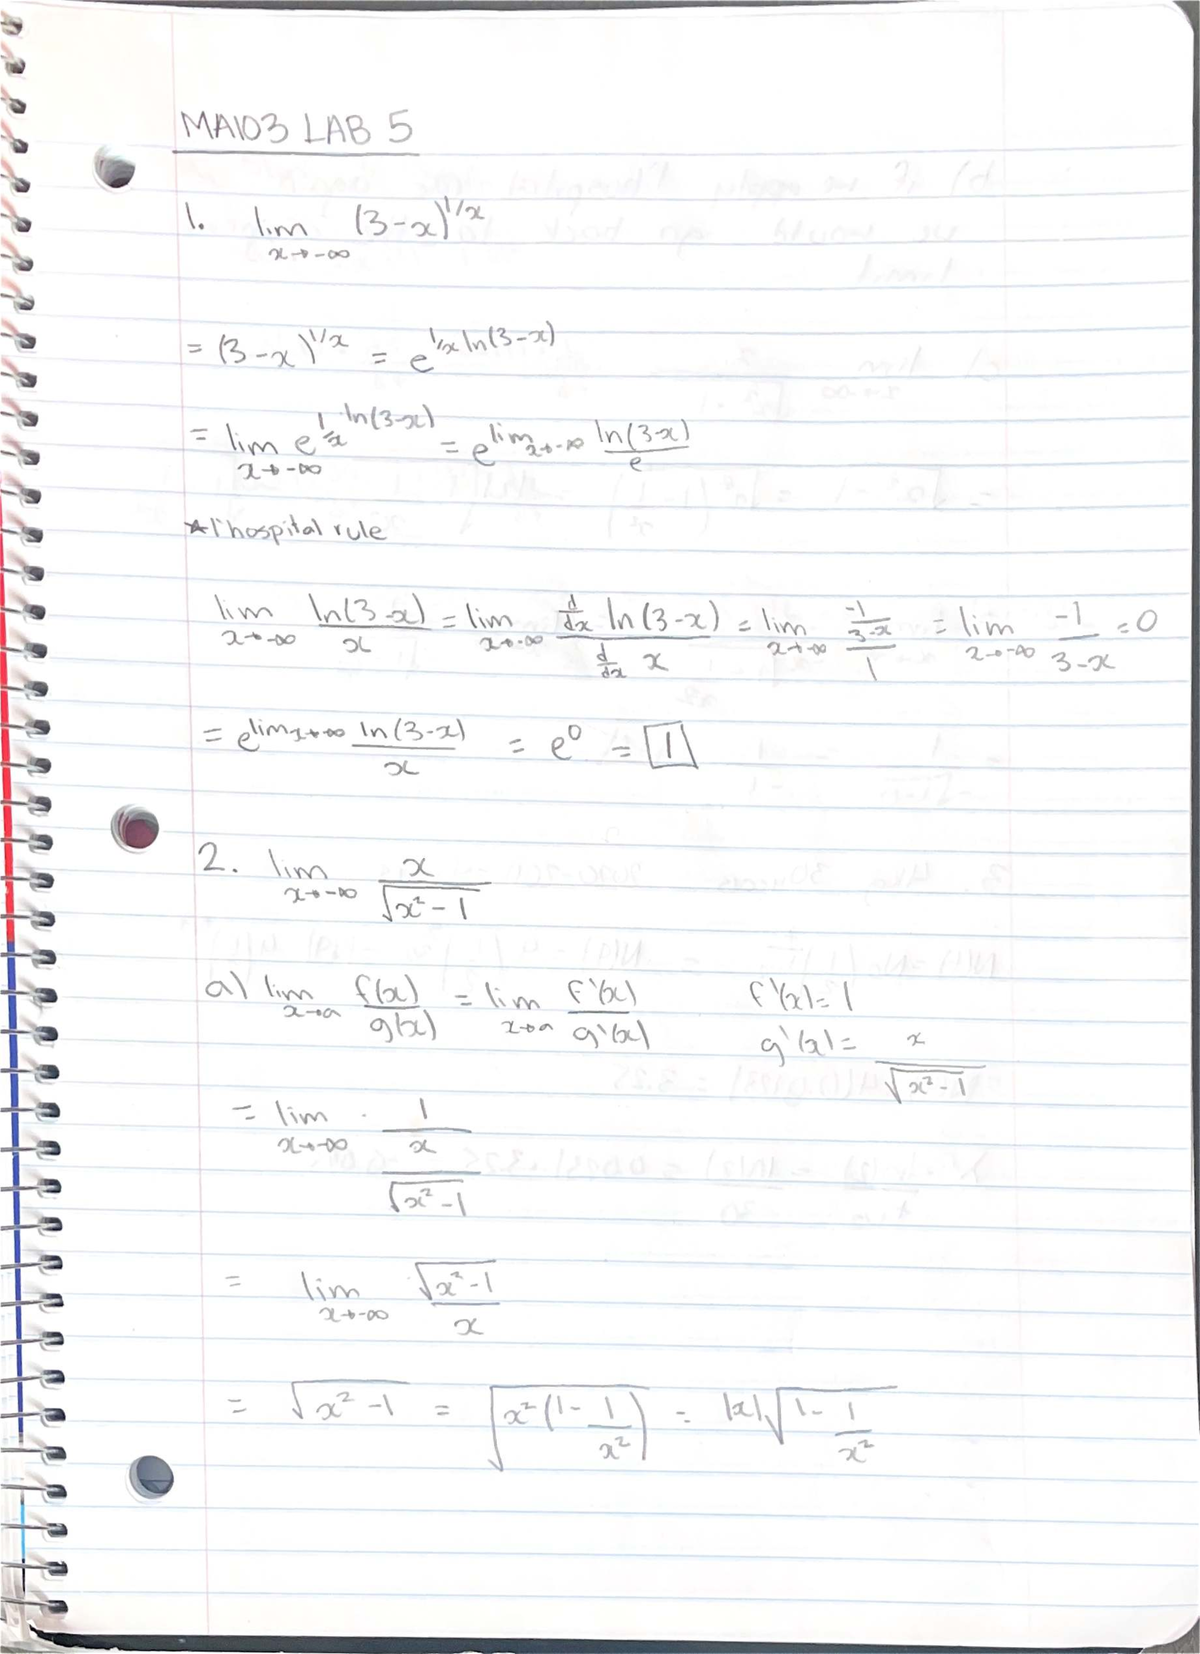 MA103 LAB 5
1. lim x→-∞ (3-x)^1/x
= (3-x)^1/x = e^1/x ln(3-x)
= lim x→-∞ e^1/x ln(3-x) = e^lim x→-∞ ln(3-x)/e
*l'hospital rule
lim x→-∞ ln(3-x)/x = lim x→-∞ d/dx ln(3-x) / d/dx x = lim x→-∞ (-1/3-x)/1 = lim x→-∞ -1/3-x = 0
= e^lim x→-∞ ln(3-x)/x = e^0 = 1
2. lim x→-∞ x/√x²-1
a) lim x→a f(x)/g(x) = lim x→a f'(x)/g'(x) f'(x)=1
g'(x)= x/√x²-1
= lim x→-∞ 1/(x/√x²-1)
= lim x→-∞ √x²-1/x
= √x²-1 = √x²(1-1/x²) = |x|√1-1/x²